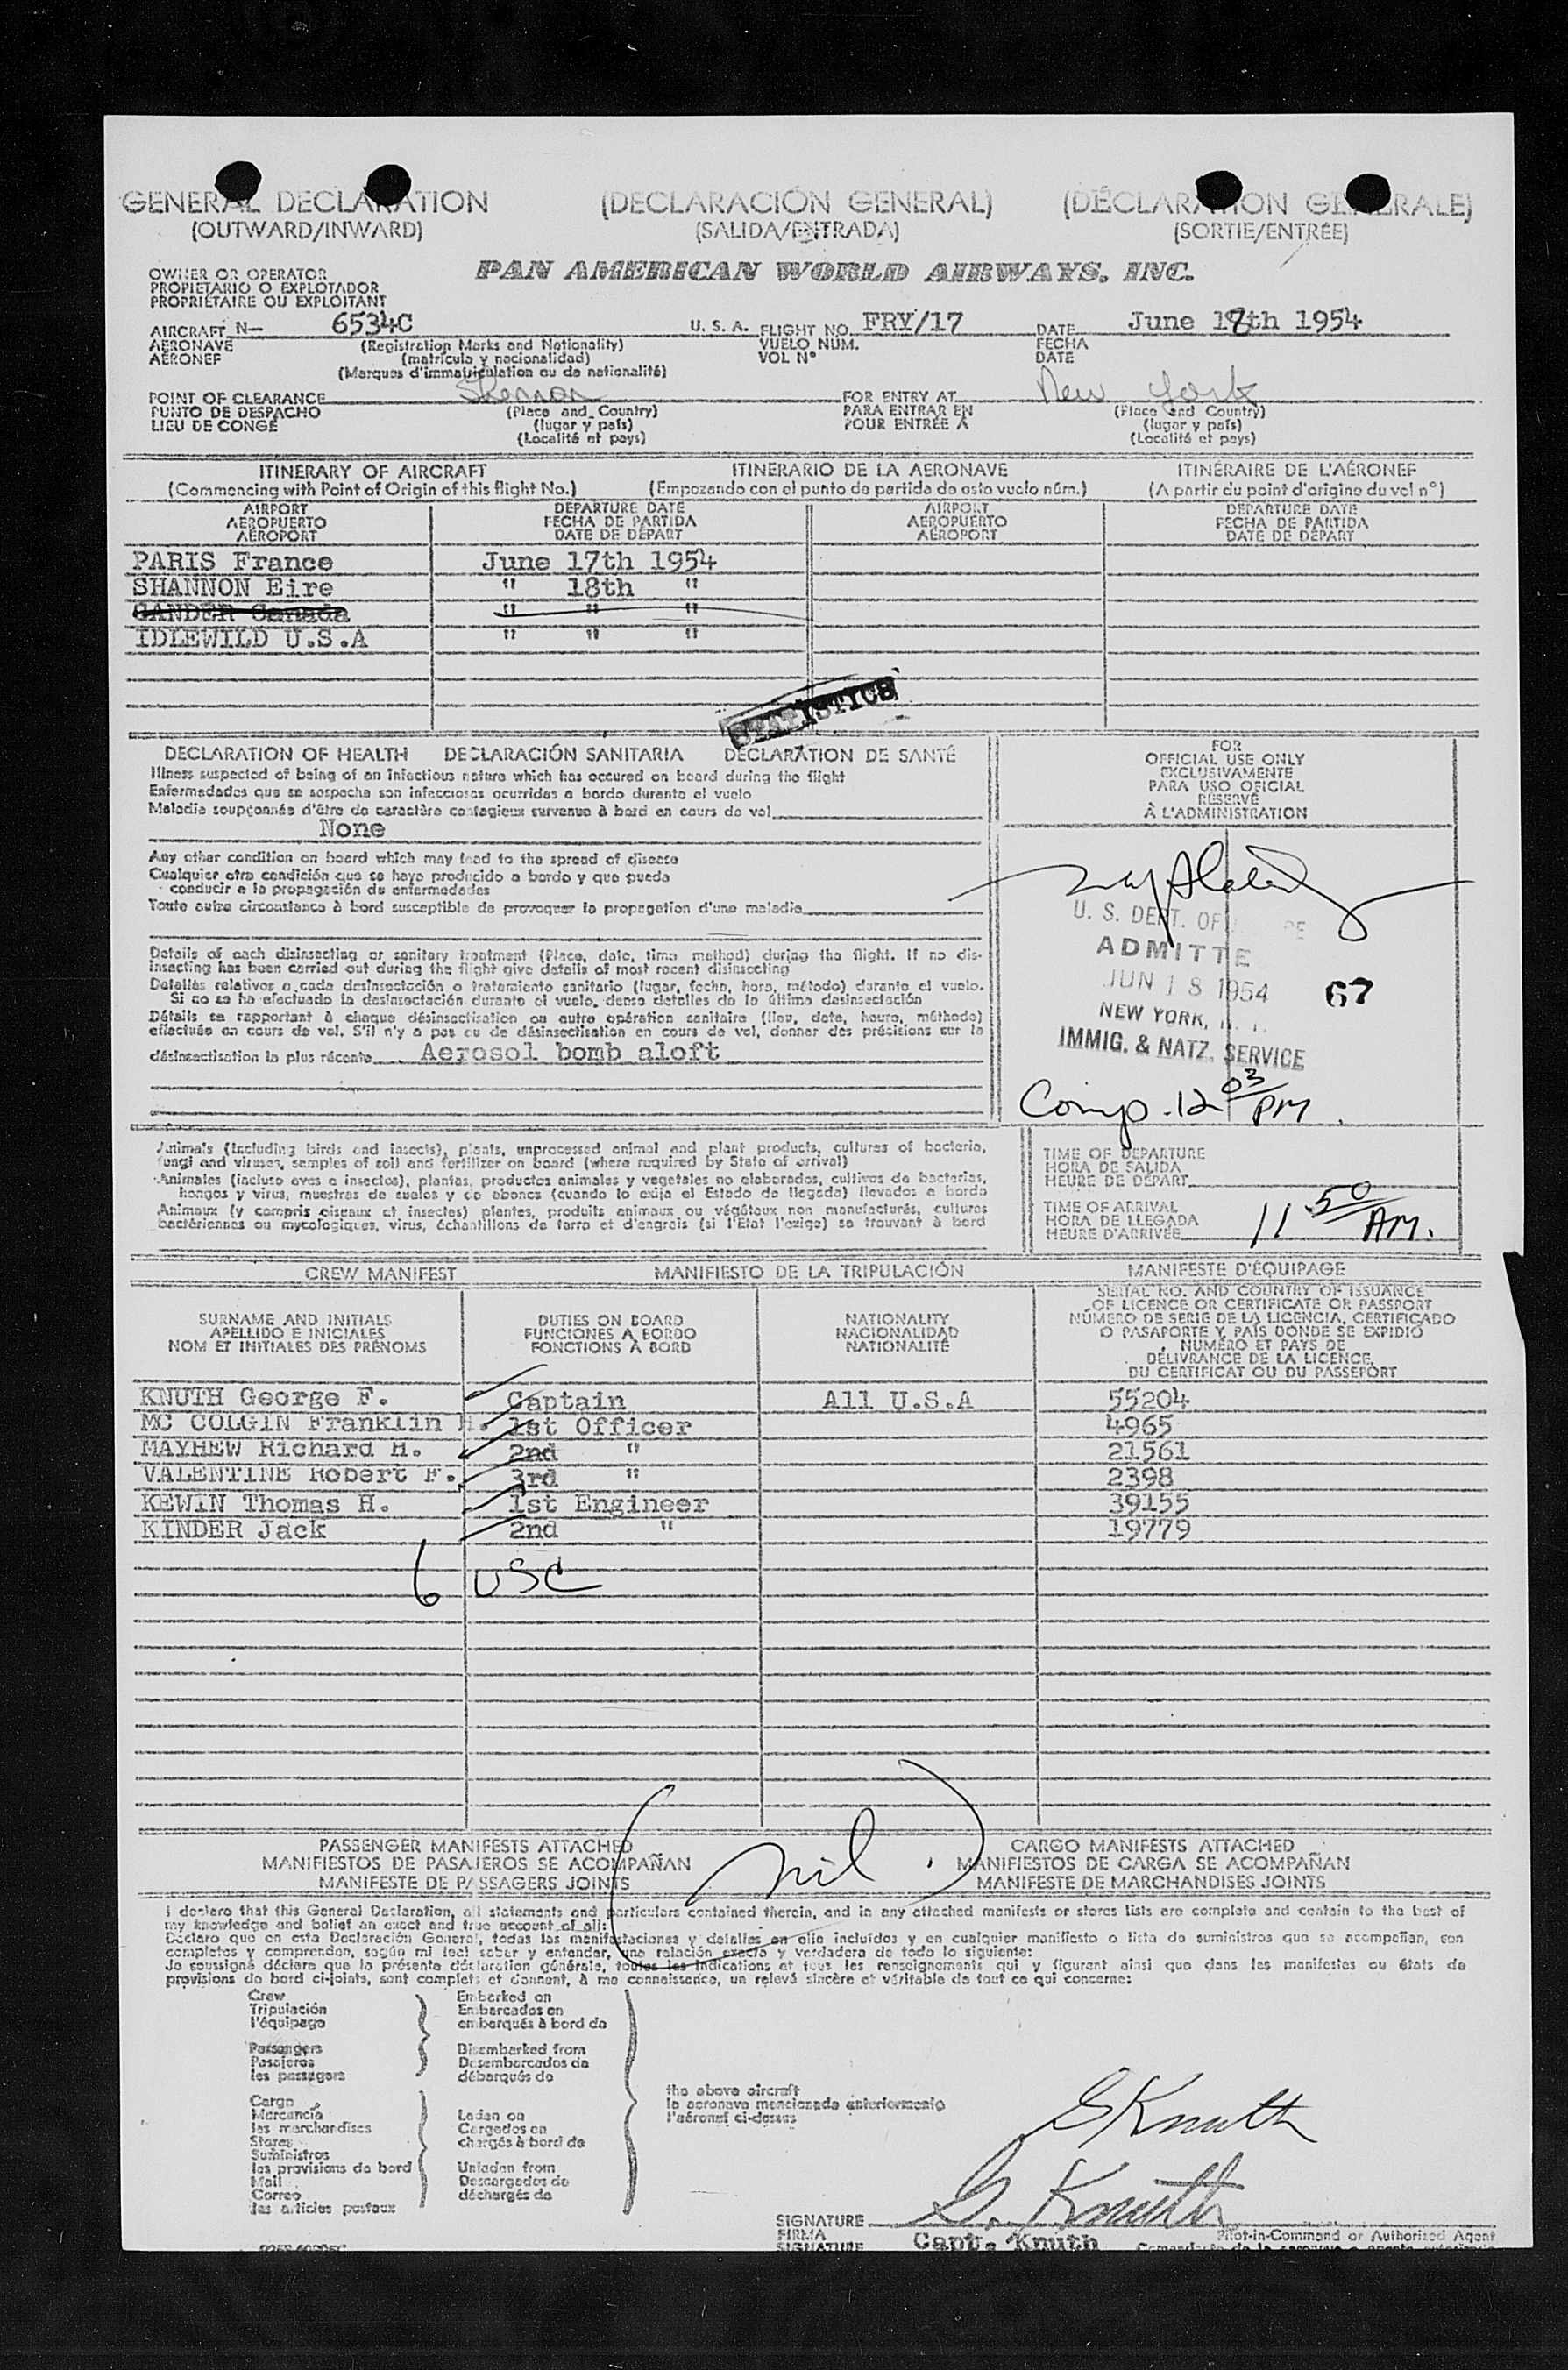 GENERAL DECLARATION (DECLARACIÓN GENERAL) (DÉCLARATION GÉNÉRALE)
(OUTWARD/INWARD) (SALIDA/ENTRADA) (SORTIE/ENTRÉE)
OWNER OR OPERATOR
PROPIETARIO O EXPLOTADOR
PROPRIÉTAIRE OU EXPLOITANT
PAN AMERICAN WORLD AIRWAYS, INC.
AIRCRAFT N— 6534C U. S. A. FLIGHT NO. FRY/17 DATE June 18th 1954
AERONAVE (Registration Marks and Nationality) VUELO NÚM. FECHA
AÉRONEF (matrícula y nacionalidad) VOL N° DATE
(Marques d'immatriculation ou de nationalité)
POINT OF CLEARANCE Shannon FOR ENTRY AT New York
PUNTO DE DESPACHO (Place and Country) PARA ENTRAR EN (Place and Country)
LIEU DE CONGÉ (lugar y país) POUR ENTRÉE À (lugar y país)
(Localité et pays) (Localité et pays)
ITINERARY OF AIRCRAFT ITINERARIO DE LA AERONAVE ITINÉRAIRE DE L'AÉRONEF
(Commencing with Point of Origin of this flight No.) (Empezando con el punto de partida de este vuelo núm.) (A partir du point d'origine du vol n°)
AIRPORT DEPARTURE DATE AIRPORT DEPARTURE DATE
AEROPUERTO FECHA DE PARTIDA AEROPUERTO FECHA DE PARTIDA
AÉROPORT DATE DE DÉPART AÉROPORT DATE DE DÉPART
PARIS France June 17th 1954
SHANNON Eire " 18th "
GANDER Canada " " "
IDLEWILD U.S.A " " "
STATISTICS
DECLARATION OF HEALTH DECLARACIÓN SANITARIA DÉCLARATION DE SANTÉ
Illness suspected of being of an infectious nature which has occured on board during the flight
Enfermedades que se sospecha son infecciosas ocurridas a bordo durante el vuelo
Maladie soupçonnée d'être de caractère contagieux survenue à bord en cours de vol
None
Any other condition on board which may lead to the spread of disease
Cualquier otra condición que se haya producido a bordo y que pueda
conducir a la propagación de enfermedades
Toute autre circonstance à bord susceptible de provoquer la propagation d'une maladie
Details of each disinsecting or sanitary treatment (Place, date, time method) during the flight. If no dis-
insecting has been carried out during the flight give details of most recent disinsecting
Detalles relativos a cada desinsectación o tratamiento sanitario (lugar, fecha, hora, método) durante el vuelo.
Si no se ha efectuado la desinsectación durante el vuelo, dense detalles de la última desinsectación
Détails se rapportant à chaque désinsectisation ou autre opération sanitaire (lieu, date, heure, méthode)
effectuée en cours de vol. S'il n'y a pas eu de désinsectisation en cours de vol, donner des précisions sur la
désinsectisation la plus récente Aerosol bomb aloft
FOR
OFFICIAL USE ONLY
EXCLUSIVAMENTE
PARA USO OFICIAL
RÉSERVÉ
À L'ADMINISTRATION
U. S. DEPT. OF
ADMITTE
JUN 18 1954 67
NEW YORK, N. Y.
IMMIG. & NATZ. SERVICE
Comp. 12 03/PM
Animals (including birds and insects), plants, unprocessed animal and plant products, cultures of bacteria,
fungi and viruses, samples of soil and fertilizer on board (where ruquired by State of arrival)
Animales (incluso aves e insectos), plantas, productos animales y vegetales no elaborados, cultivos de bacterias,
hongos y virus, muestras de suelos y de abonos (cuando lo exija el Estado de llegada) llevados a bordo
Animaux (y compris oiseaux et insectes) plantes, produits animaux ou végétaux non manufacturés, cultures
bactériennes ou mycologiques, virus, échantillons de terre et d'engrais (si l'Etat l'exige) se trouvant à bord
TIME OF DEPARTURE
HORA DE SALIDA
HEURE DE DÉPART
TIME OF ARRIVAL
HORA DE LLEGADA
HEURE D'ARRIVÉE 11.50/AM.
CREW MANIFEST MANIFIESTO DE LA TRIPULACIÓN MANIFESTE D'ÉQUIPAGE
SURNAME AND INITIALS
APELLIDO E INICIALES
NOM ET INITIALES DES PRÉNOMS
DUTIES ON BOARD
FUNCIONES A BORDO
FONCTIONS À BORD
NATIONALITY
NACIONALIDAD
NATIONALITÉ
SERIAL NO. AND COUNTRY OF ISSUANCE
OF LICENCE OR CERTIFICATE OR PASSPORT
NÚMERO DE SERIE DE LA LICENCIA, CERTIFICADO
O PASAPORTE Y PAÍS DONDE SE EXPIDIÓ
NUMÉRO ET PAYS DE
DÉLIVRANCE DE LA LICENCE,
DU CERTIFICAT OU DU PASSEPORT
KNUTH George F. Captain All U.S.A 55204
MC COLGIN Franklin H. 1st Officer 4965
MAYHEW Richard H. 2nd " 21561
VALENTINE Robert F. 3rd " 2398
KEWIN Thomas H. 1st Engineer 39155
KINDER Jack 2nd " 19779
6 USC
PASSENGER MANIFESTS ATTACHED CARGO MANIFESTS ATTACHED
MANIFIESTOS DE PASAJEROS SE ACOMPAÑAN (nil.) MANIFIESTOS DE CARGA SE ACOMPAÑAN
MANIFESTE DE PASSAGERS JOINTS MANIFESTE DE MARCHANDISES JOINTS
I declare that this General Declaration, all statements and particulars contained therein, and in any attached manifests or stores lists are complete and contain to the best of
my knowledge and belief an exact and true account of all:
Declaro que en esta Declaración General, todas las manifestaciones y detalles en ella incluídos y en cualquier manifiesto o lista de suministros que se acompañan, son
completos y comprenden, según mi leal saber y entender, una relación exacta y verdadera de todo lo siguiente:
Je soussigné déclare que la présente déclaration générale, toutes les indications et tous les renseignements qui y figurent ainsi que dans les manifestes ou états de
provisions de bord ci-joints, sont complets et donnent, à ma connaissance, un relevé sincère et véritable de tout ce qui concerne:
Crew Embarked on
Tripulación Embarcados en
l'équipage embarqués à bord de
Passengers Disembarked from
Pasajeros Desembarcados de
les passagers débarqués de
the above aircraft
la aeronave mencionada anteriormente
l'aéronef ci-dessus
Cargo
Mercancía Laden on
les marchandises Cargados en
Stores chargés à bord de
Suministros
les provisions de bord Unladen from
Mail Descargados de
Correo déchargés de
les articles postaux
G Knuth
G. Knuth
SIGNATURE Pilot-in-Command or Authorized Agent
FIRMA Capt. Knuth
SIGNATURE